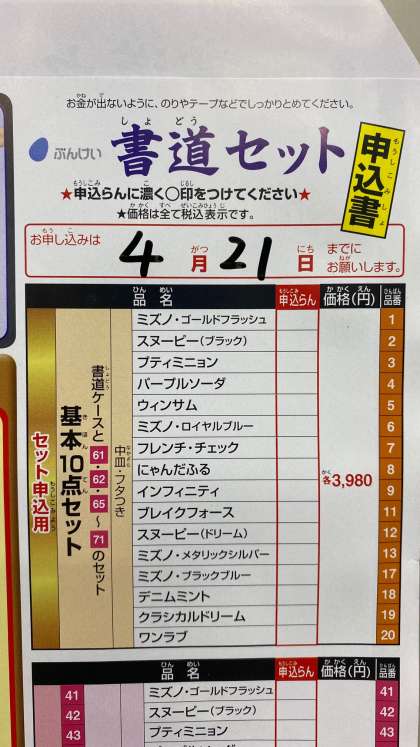 お金が出ないように、のりやテープなどでしっかりとめてください。
ぶんけい 書道セット 申込書
★申込らんに濃く○印をつけてください★
★価格は全て税込表示です。
お申し込みは 4月21日 までにお願いします。
品名 申込らん 価格(円) 品番
セット申込用
基本10点セット
書道ケースと61・62・65～71のセット
中皿・フタつき
各3,980
ミズノ・ゴールドフラッシュ 1
スヌーピー(ブラック) 2
プティミニョン 3
パープルソーダ 4
ウィンサム 5
ミズノ・ロイヤルブルー 6
フレンチ・チェック 7
にゃんだふる 8
インフィニティ 9
ブレイクフォース 11
スヌーピー(ドリーム) 12
ミズノ・メタリックシルバー 13
ミズノ・ブラックブルー 17
デニムミント 18
クラシカルドリーム 19
ワンラブ 20
品名 申込らん 価格(円) 品番
41 ミズノ・ゴールドフラッシュ 41
42 スヌーピー(ブラック) 42
43 プティミニョン 43